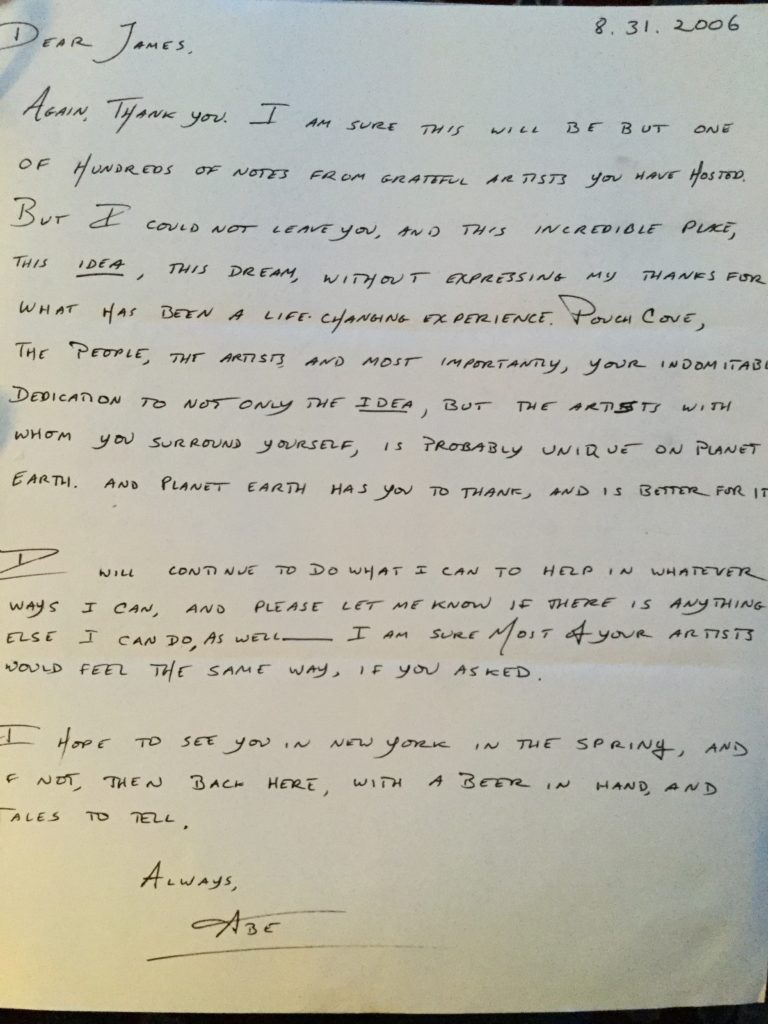 8.31.2006
DEAR JAMES,
AGAIN, THANK YOU. I AM SURE THIS WILL BE BUT ONE
OF HUNDREDS OF NOTES FROM GRATEFUL ARTISTS YOU HAVE HOSTED.
BUT I COULD NOT LEAVE YOU, AND THIS INCREDIBLE PLACE,
THIS IDEA, THIS DREAM, WITHOUT EXPRESSING MY THANKS FOR
WHAT HAS BEEN A LIFE-CHANGING EXPERIENCE. POUCH COVE,
THE PEOPLE, THE ARTISTS, AND MOST IMPORTANTLY, YOUR INDOMITABL
DEDICATION TO NOT ONLY THE IDEA, BUT THE ARTISTS WITH
WHOM YOU SURROUND YOURSELF, IS PROBABLY UNIQUE ON PLANET
EARTH. AND PLANET EARTH HAS YOU TO THANK, AND IS BETTER FOR IT
I WILL CONTINUE TO DO WHAT I CAN TO HELP IN WHATEVER
WAYS I CAN, AND PLEASE LET ME KNOW IF THERE IS ANYTHING
ELSE I CAN DO, AS WELL — I AM SURE MOST OF YOUR ARTISTS
WOULD FEEL THE SAME WAY, IF YOU ASKED.
I HOPE TO SEE YOU IN NEW YORK IN THE SPRING, AND
F NOT, THEN BACK HERE, WITH A BEER IN HAND, AND
TALES TO TELL.
ALWAYS,
ABE